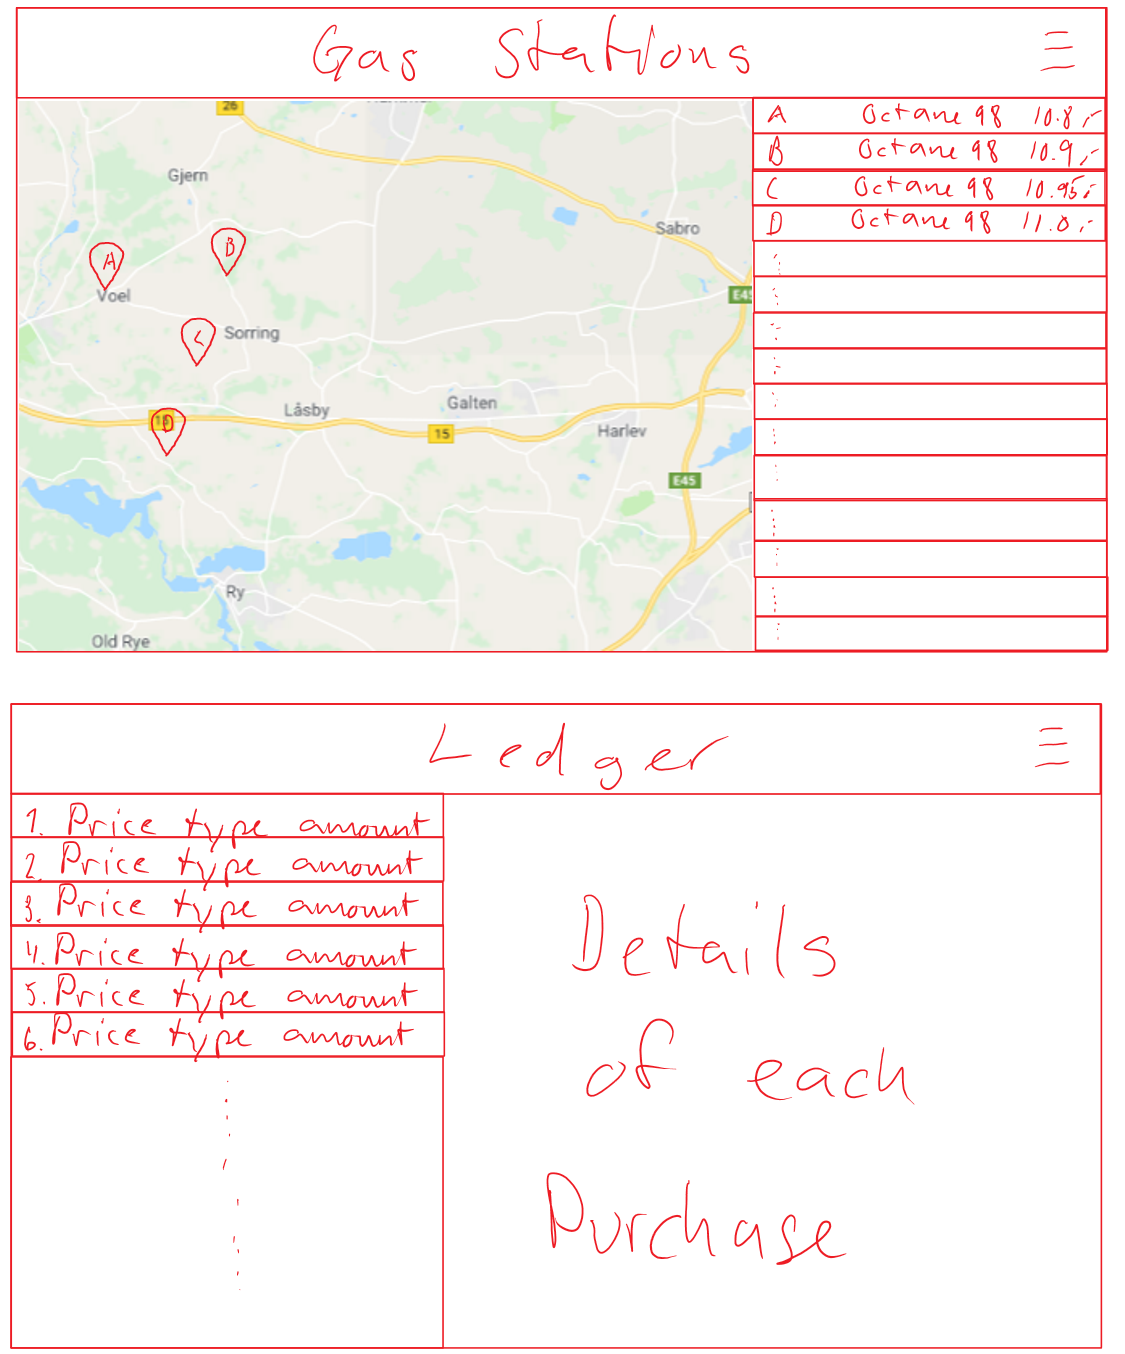 Gas Stations
26
Gjern
Sabro
A
B
Voel
E45
C
Sorring
15
D
Låsby
Galten
15
Harlev
E45
Ry
Old Rye
A Octane 98 10.8,-
B Octane 98 10.9,-
C Octane 98 10.95,-
D Octane 98 11.0,-
Ledger
1. Price type amount
2. Price type amount
3. Price type amount
4. Price type amount
5. Price type amount
6. Price type amount
Details
of each
Purchase